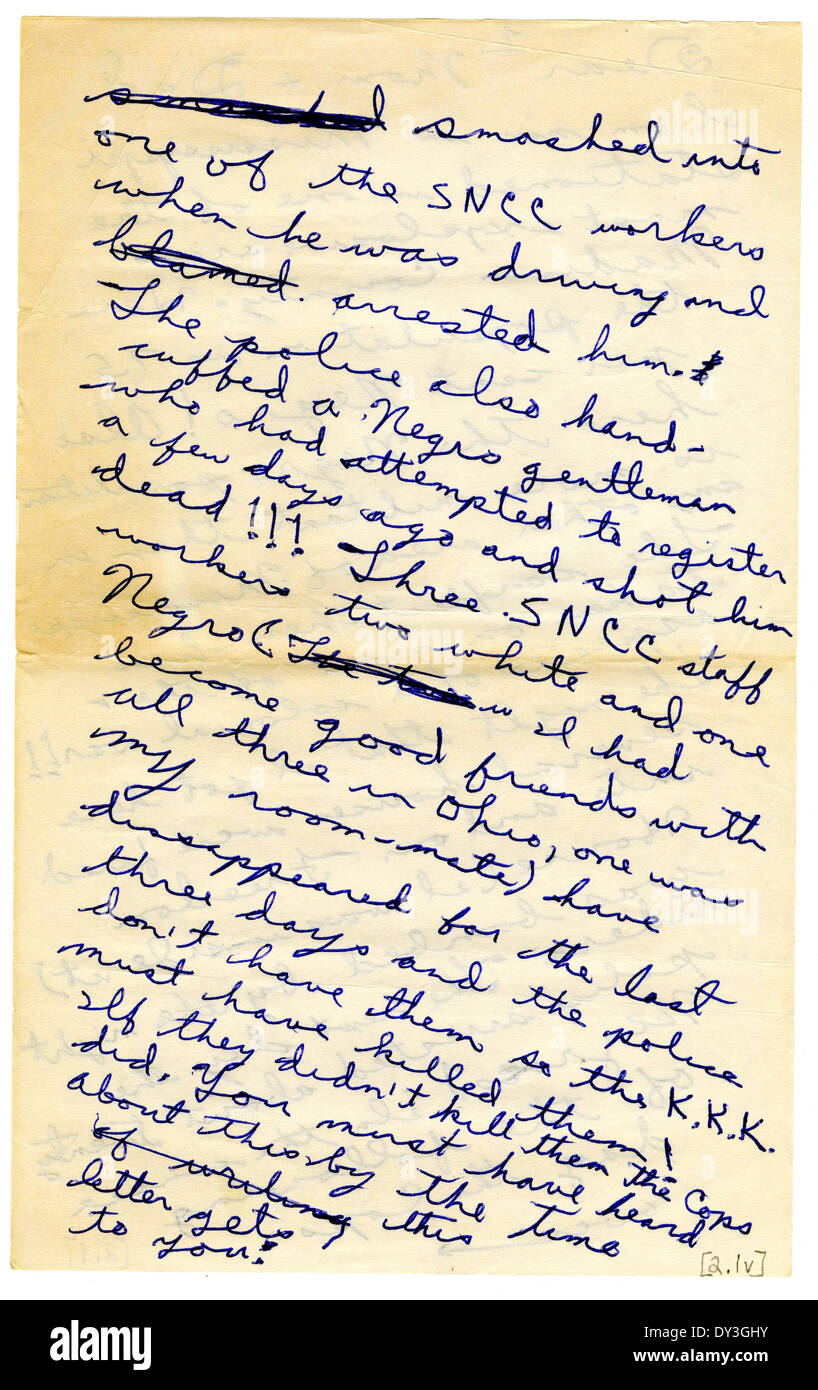 smashed into
one of the SNCC workers
when he was driving and
blamed. arrested him.
The police also hand-
cuffed a Negro gentleman
who had attempted to register
a few days ago and shot him
dead!!! Three SNCC staff
workers two white and one
Negro (I had
become good friends with
all three in Ohio, one was
my room-mate) have
dissappeared for the last
three days and the police
don't have them so the K.K.K.
must have killed them!
If they didn't kill them the cops
did. You must have heard
about this by the time
of writing this
letter gets
to you!
[2.1v]
alamy
Image ID: DY3GHY
www.alamy.com